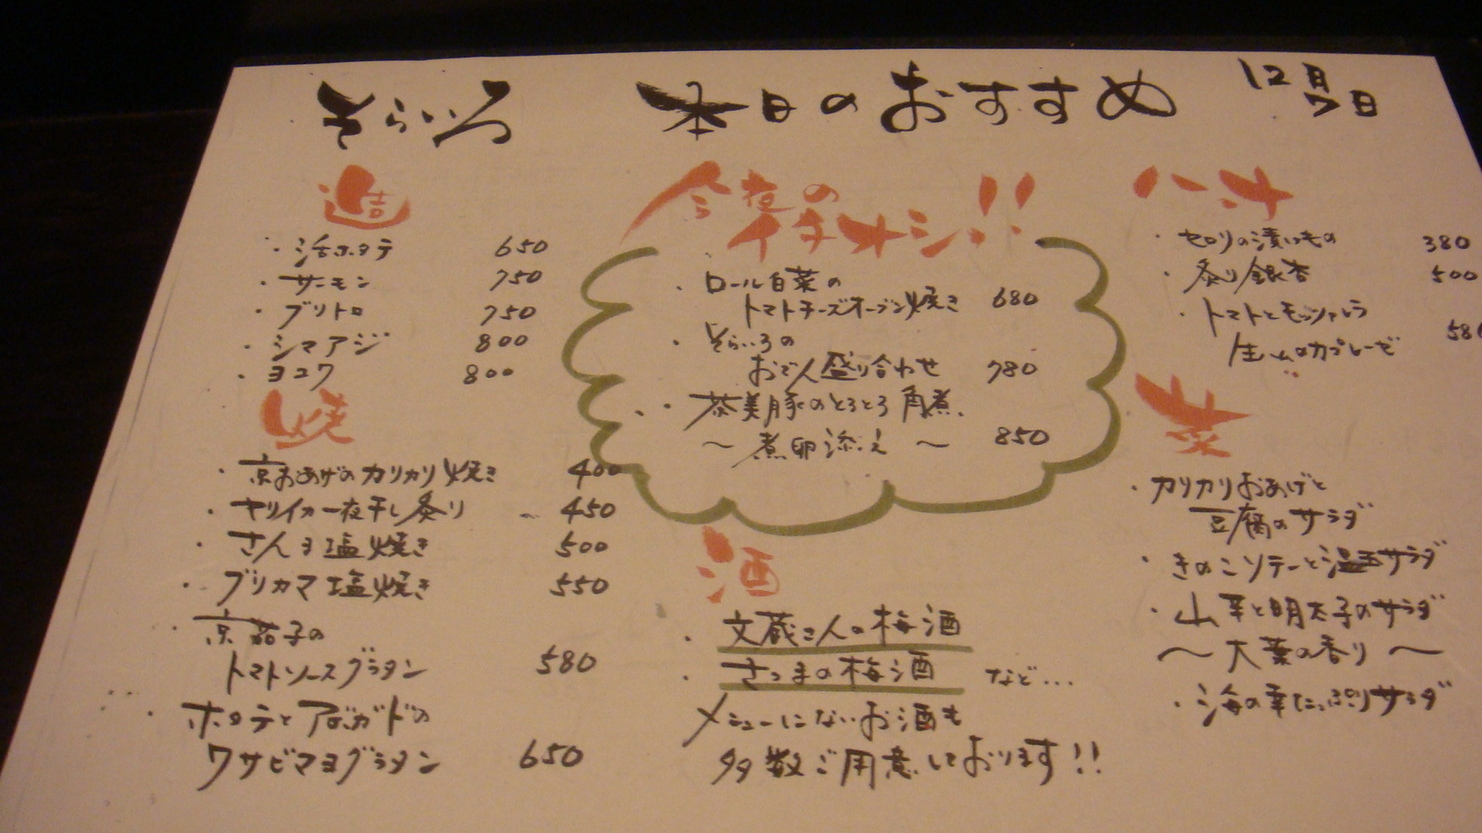 そらいろ 本日のおすすめ 12月7日
造
・活ホタテ 650
・サーモン 750
・ブリトロ 750
・シマアジ 800
・ヨコワ 800
焼
・京おあげのカリカリ焼き 400
・ヤリイカ一夜干し炙り 450
・さんま塩焼き 500
・ブリカマ塩焼き 550
・京茄子の
トマトソースグラタン 580
・ホタテとアボガドの
ワサビマヨグラタン 650
今夜の
イチオシ!!
・ロール白菜の
トマトチーズオーブン焼き 680
・そらいろの
おでん盛り合わせ 780
・茶美豚のとろとろ角煮
〜煮卵添え〜 850
酒
・文蔵さんの梅酒
・さつまの梅酒 など…
メニューにないお酒も
多数ご用意しております!!
八寸
・セロリの漬けもの 380
・炙り銀杏 500
・トマトとモッツァレラ
生ハムのカプレーゼ 580
菜
・カリカリおあげと
豆腐のサラダ
・きのこソテーと温玉サラダ
・山芋と明太子のサラダ
〜大葉の香り〜
・海の幸たっぷりサラダ